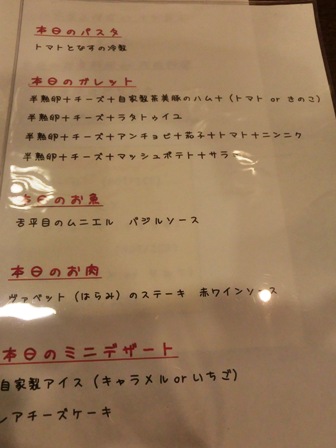 本日のパスタ
トマトとなすの冷製
本日のガレット
半熟卵+チーズ+自家製茶美豚のハム+(トマト or きのこ)
半熟卵+チーズ+ラタトゥイユ
半熟卵+チーズ+アンチョビ+茄子+トマト+ニンニク
半熟卵+チーズ+マッシュポテト+サラ
本日のお魚
舌平目のムニエル バジルソース
本日のお肉
ヴァベット(はらみ)のステーキ 赤ワインソース
本日のミニデザート
自家製アイス(キャラメル or いちご)
レアチーズケーキ